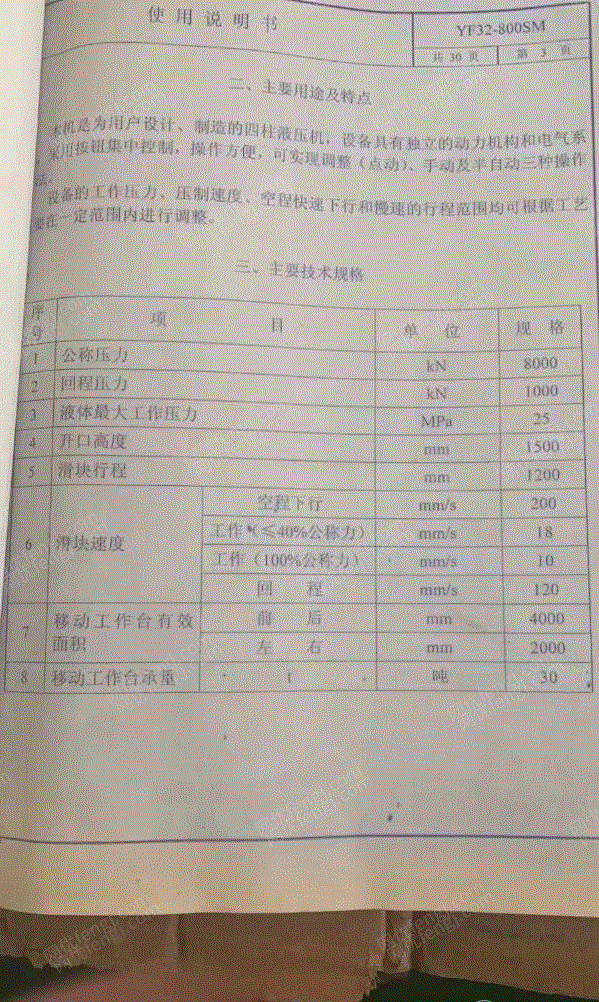 使用说明书
YF32-800SM
共 30 页 第 3 页
二、主要用途及特点
本机是为用户设计、制造的四柱液压机，设备具有独立的动力机构和电气系
采用按钮集中控制，操作方便，可实现调整（点动）、手动及半自动三种操作
法。
设备的工作压力、压制速度、空程快速下行和慢速的行程范围均可根据工艺
要在一定范围内进行调整。
三、主要技术规格
序号 项 目 单 位 规 格
1 公称压力 kN 8000
2 回程压力 kN 1000
3 液体最大工作压力 MPa 25
4 开口高度 mm 1500
5 滑块行程 mm 1200
6 滑块速度 空程下行 mm/s 200
工作（≤40%公称力） mm/s 18
工作（100%公称力） mm/s 10
回 程 mm/s 120
7 移动工作台有效面积 前 后 mm 4000
左 右 mm 2000
8 移动工作台承重 t 吨 30